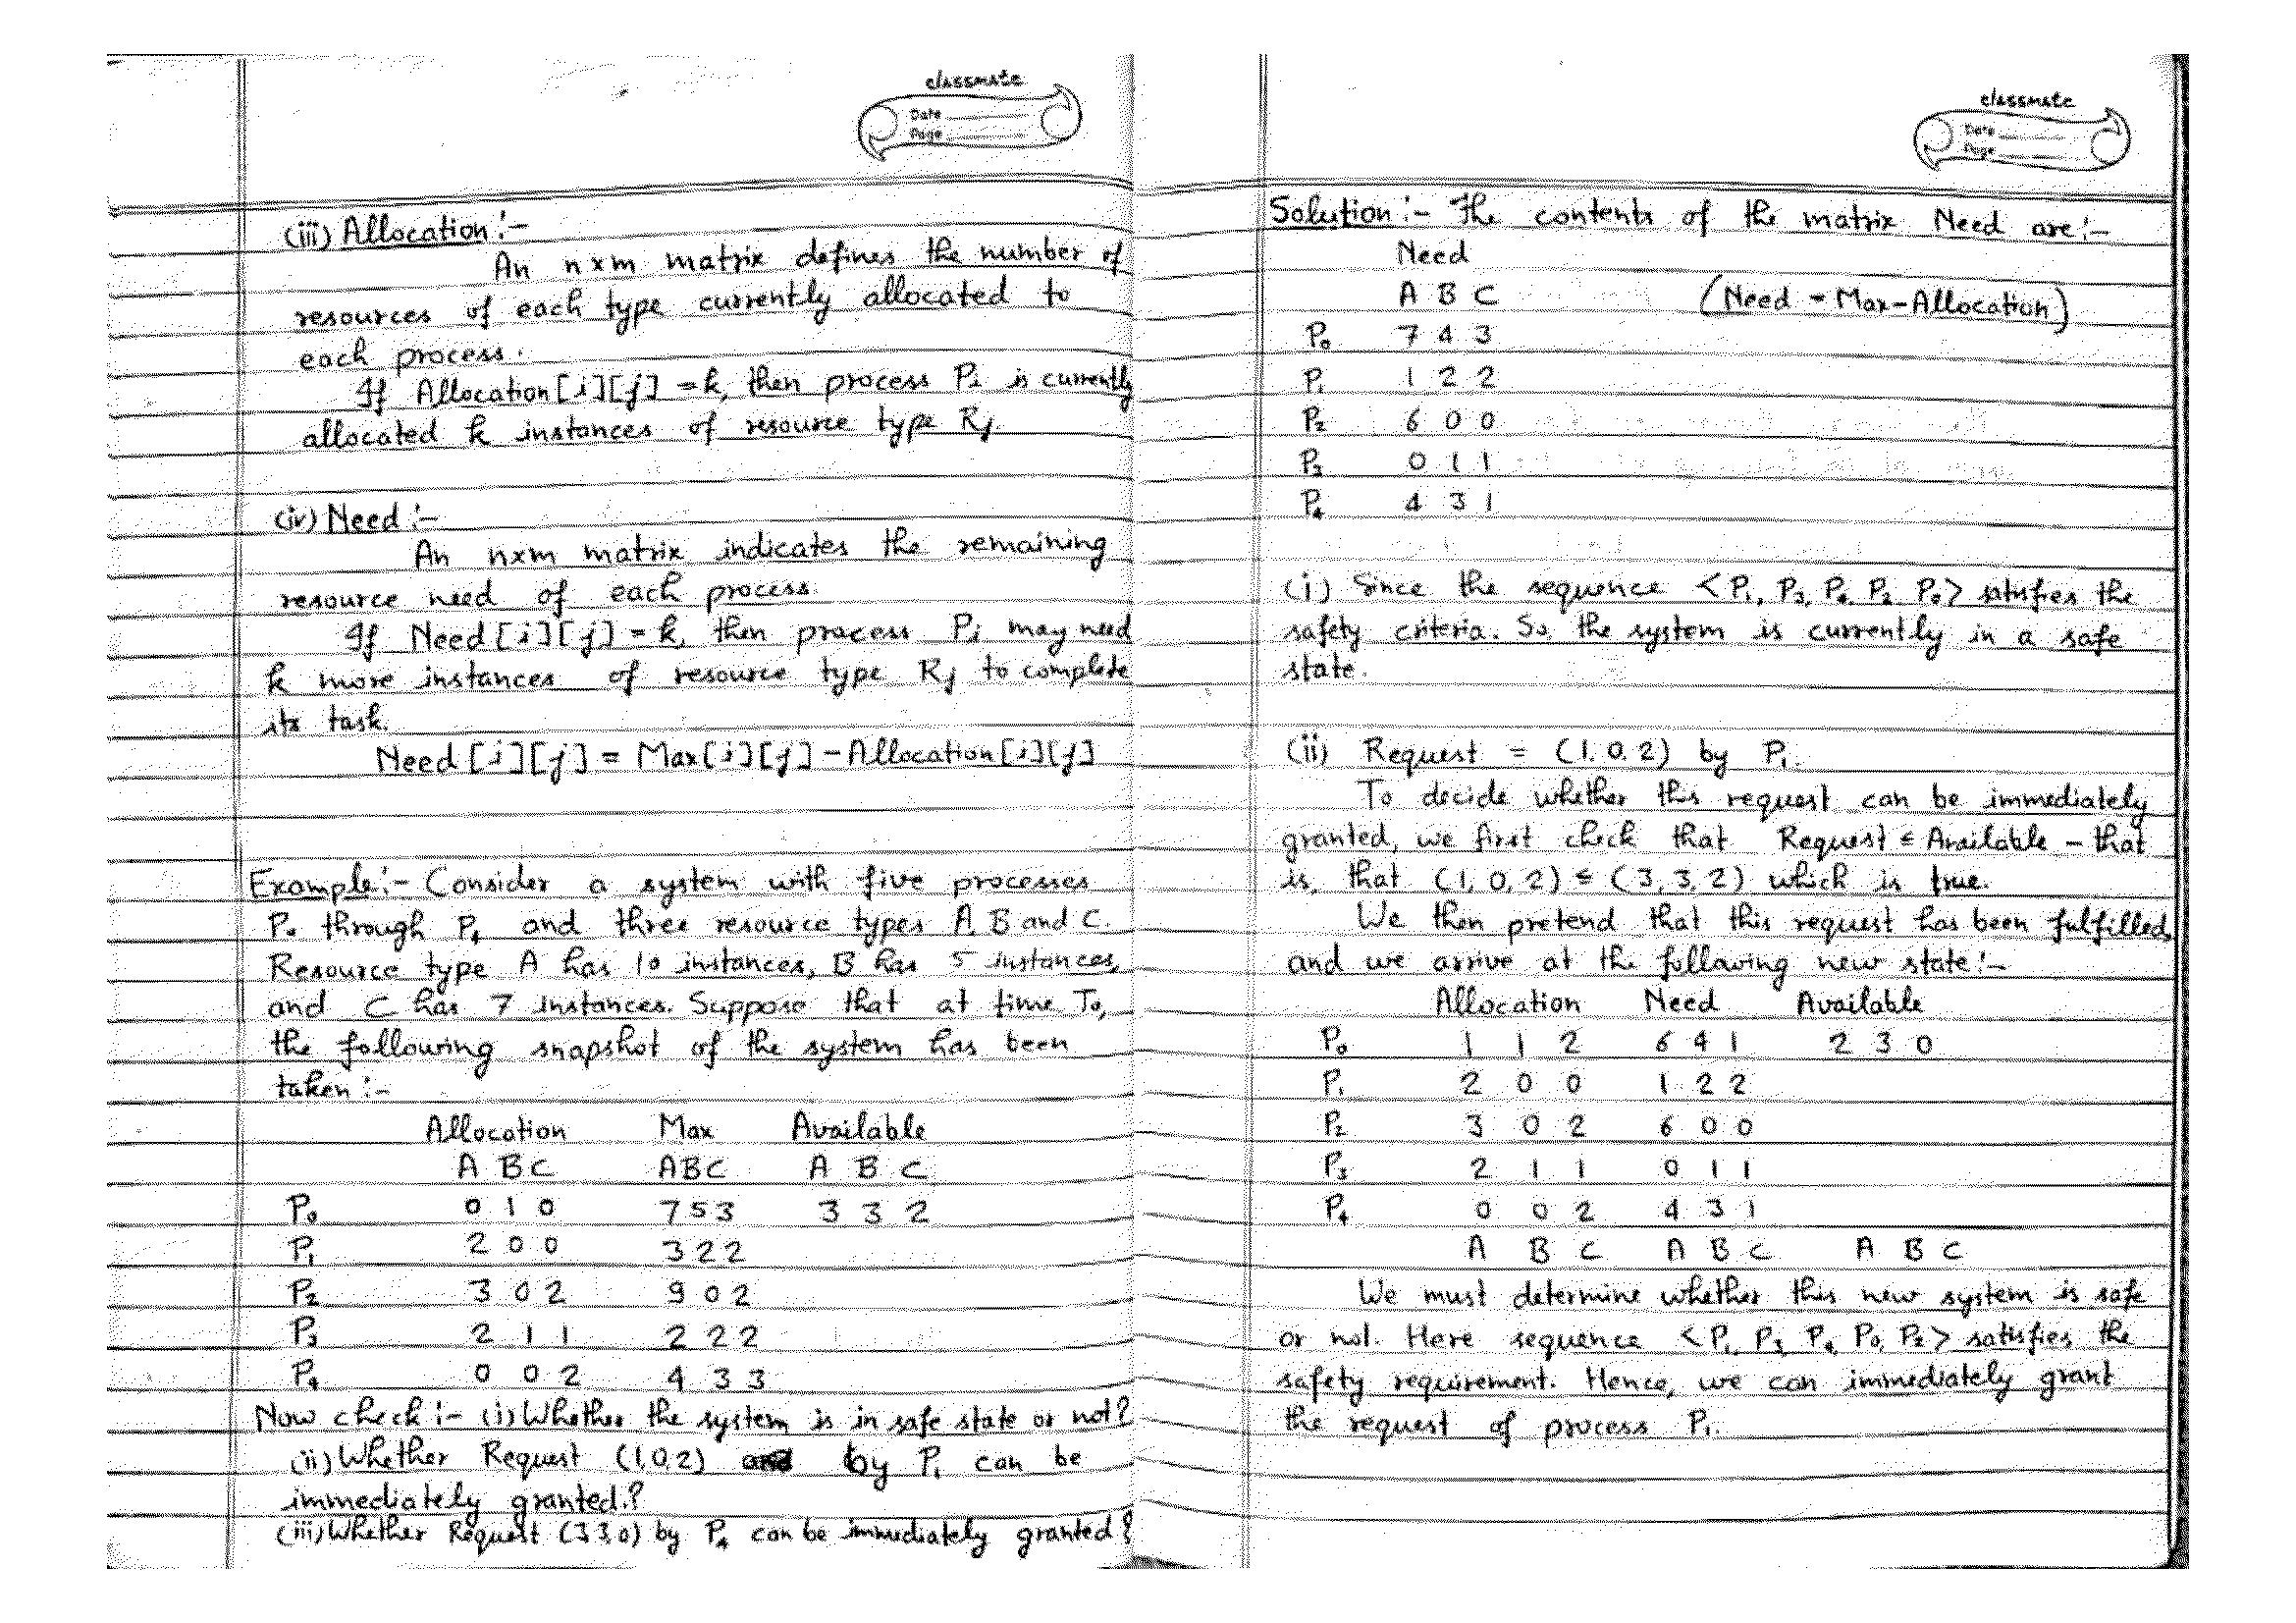 classmate
Date
Page
(iii) Allocation :-
An n×m matrix defines the number of
resources of each type currently allocated to
each process.
If Allocation[i][j] = k, then process Pi is currently
allocated k instances of resource type Rj.
(iv) Need :-
An n×m matrix indicates the remaining
resource need of each process.
If Need[i][j] = k, then process Pi may need
k more instances of resource type Rj to complete
its task.
Need[i][j] = Max[i][j] - Allocation[i][j]
Example :- Consider a system with five processes
P₀ through P₄ and three resource types A B and C.
Resource type A has 10 instances, B has 5 instances,
and C has 7 instances. Suppose that at time T₀,
the following snapshot of the system has been
taken :-
Allocation Max Available
A B C A B C A B C
P₀ 0 1 0 7 5 3 3 3 2
P₁ 2 0 0 3 2 2
P₂ 3 0 2 9 0 2
P₃ 2 1 1 2 2 2
P₄ 0 0 2 4 3 3
Now check :- (i) Whether the system is in safe state or not?
(ii) Whether Request (1,0,2) by P₁ can be
immediately granted.?
(iii) Whether Request (3 3 0) by P₄ can be immediately granted?
classmate
Date
Page
Solution :- The contents of the matrix Need are :-
Need
A B C (Need = Max - Allocation)
P₀ 7 4 3
P₁ 1 2 2
P₂ 6 0 0
P₃ 0 1 1
P₄ 4 3 1
(i) Since the sequence <P₁, P₃, P₄, P₂, P₀> satisfies the
safety criteria. So the system is currently in a safe
state.
(ii) Request = (1, 0, 2) by P₁.
To decide whether this request can be immediately
granted, we first check that Request ≤ Available - that
is, that (1, 0, 2) ≤ (3, 3, 2) which is true.
We then pretend that this request has been fulfilled,
and we arrive at the following new state :-
Allocation Need Available
P₀ 1 1 2 6 4 1 2 3 0
P₁ 2 0 0 1 2 2
P₂ 3 0 2 6 0 0
P₃ 2 1 1 0 1 1
P₄ 0 0 2 4 3 1
A B C A B C A B C
We must determine whether this new system is safe
or not. Here sequence <P₁, P₃, P₄, P₀, P₂> satisfies the
safety requirement. Hence, we can immediately grant
the request of process P₁.